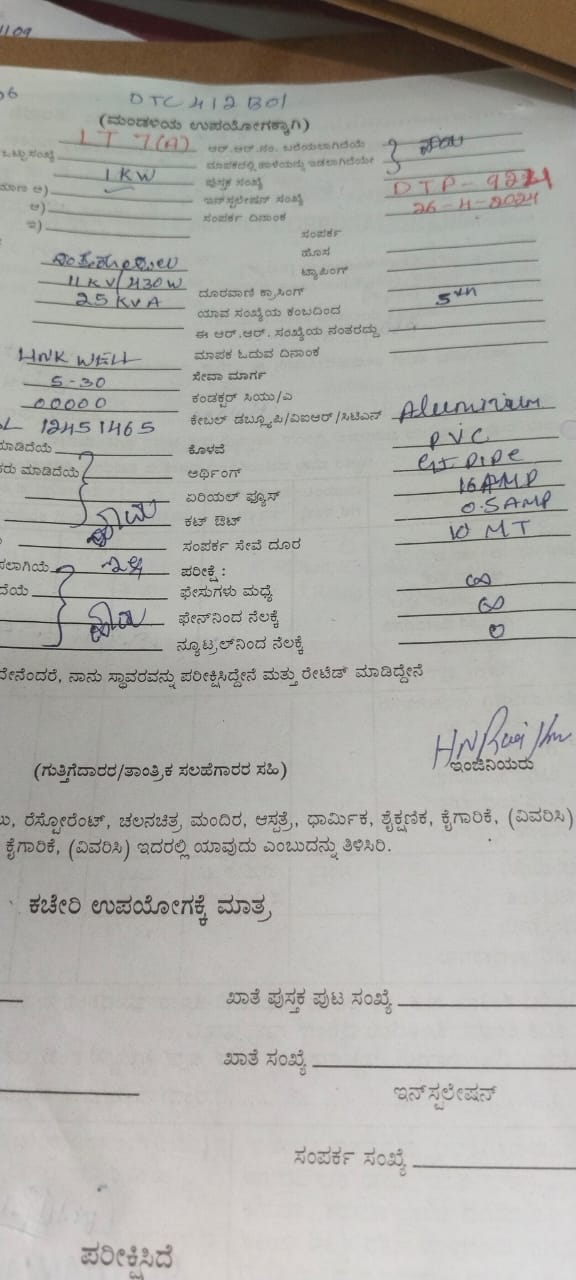 1109
06 DTC 412 B01
(ಮಂಡಳಿಯ ಉಪಯೋಗಕ್ಕಾಗಿ)
LT 7(A) ಆರ್.ಆರ್.ನಂ. ಬರೆಯಲಾಗಿದೆಯೆ
ಒಟ್ಟು ಸಂಖ್ಯೆ ಮಾಪಕದಲ್ಲಿ ಹಾಳೆಯನ್ನು ಇಡಲಾಗಿದೆಯೇ
1KW ಪುಸ್ತಕ ಸಂಖ್ಯೆ DTP-9221
ಅ) ಇನ್‌ಸ್ಟಲೇಷನ್ ಸಂಖ್ಯೆ 26-4-2024
ಆ) ಸಂಪರ್ಕ ದಿನಾಂಕ
ಇ) ಸಂಪರ್ಕ
ಹೊಸ
ಟ್ಯಾಪಿಂಗ್
11KV/430W ದೂರವಾಣಿ ಕ್ರಾಸಿಂಗ್
25 KVA ಯಾವ ಸಂಖ್ಯೆಯ ಕಂಬದಿಂದ 5th
ಈ ಆರ್.ಆರ್. ಸಂಖ್ಯೆಯ ನಂತರದ್ದು
HNK WELL ಮಾಪಕ ಓದುವ ದಿನಾಂಕ
5-30 ಸೇವಾ ಮಾರ್ಗ
00000 ಕಂಡಕ್ಟರ್ ಸಿಯು/ಎ
L 12451465 ಕೇಬಲ್ ಡಬ್ಲ್ಯೂಪಿ/ವಿಐಆರ್/ಸಿಟಿಎಸ್ Aluminium
ಮಾಡಿದೆಯೆ ಕೊಳವೆ PVC
ರು ಮಾಡಿದೆಯೆ ಅರ್ಥಿಂಗ್ GI PIPE
ಏರಿಯಲ್ ಫ್ಯೂಸ್ 16 AMP
ಕಟ್ ಔಟ್ 0.5 AMP
ಸಂಪರ್ಕ ಸೇವೆ ದೂರ 10 MT
ಸಲಾಗಿಯೆ ಇಲ್ಲ ಪರೀಕ್ಷೆ :
ದೆಯೆ ಫೇಸುಗಳು ಮಧ್ಯೆ ∞
ಫೇಸ್‌ನಿಂದ ನೆಲಕ್ಕೆ ∞
ನ್ಯೂಟ್ರಲ್‌ನಿಂದ ನೆಲಕ್ಕೆ 0
ದೇನೆಂದರೆ, ನಾನು ಸ್ಥಾವರವನ್ನು ಪರೀಕ್ಷಿಸಿದ್ದೇನೆ ಮತ್ತು ರೇಟೆಡ್ ಮಾಡಿದ್ದೇನೆ
(ಗುತ್ತಿಗೆದಾರರ/ತಾಂತ್ರಿಕ ಸಲಹೆಗಾರರ ಸಹಿ) ಇಂಜಿನಿಯರು
ಲು, ರೆಸ್ಟೋರೆಂಟ್, ಚಲನಚಿತ್ರ ಮಂದಿರ, ಆಸ್ಪತ್ರೆ, ಧಾರ್ಮಿಕ, ಶೈಕ್ಷಣಿಕ, ಕೈಗಾರಿಕೆ, (ವಿವರಿಸಿ)
ಕೈಗಾರಿಕೆ, (ವಿವರಿಸಿ) ಇದರಲ್ಲಿ ಯಾವುದು ಎಂಬುದನ್ನು ತಿಳಿಸಿರಿ.
ಕಚೇರಿ ಉಪಯೋಗಕ್ಕೆ ಮಾತ್ರ
ಖಾತೆ ಪುಸ್ತಕ ಪುಟ ಸಂಖ್ಯೆ
ಖಾತೆ ಸಂಖ್ಯೆ
ಇನ್‌ಸ್ಟಲೇಷನ್
ಸಂಪರ್ಕ ಸಂಖ್ಯೆ
ಪರೀಕ್ಷಿಸಿದೆ